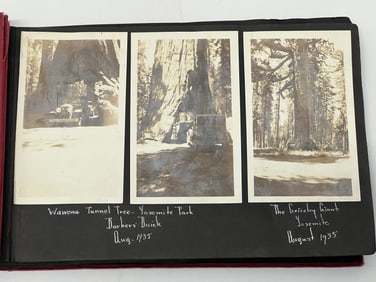 Wawona Tunnel Tree - Yosemite Park
Barbers' Buick
Aug. 1935
The Grizzly Giant
Yosemite
August 1935